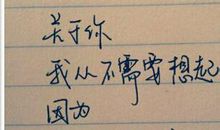 关于你
我从不需要想起
因为